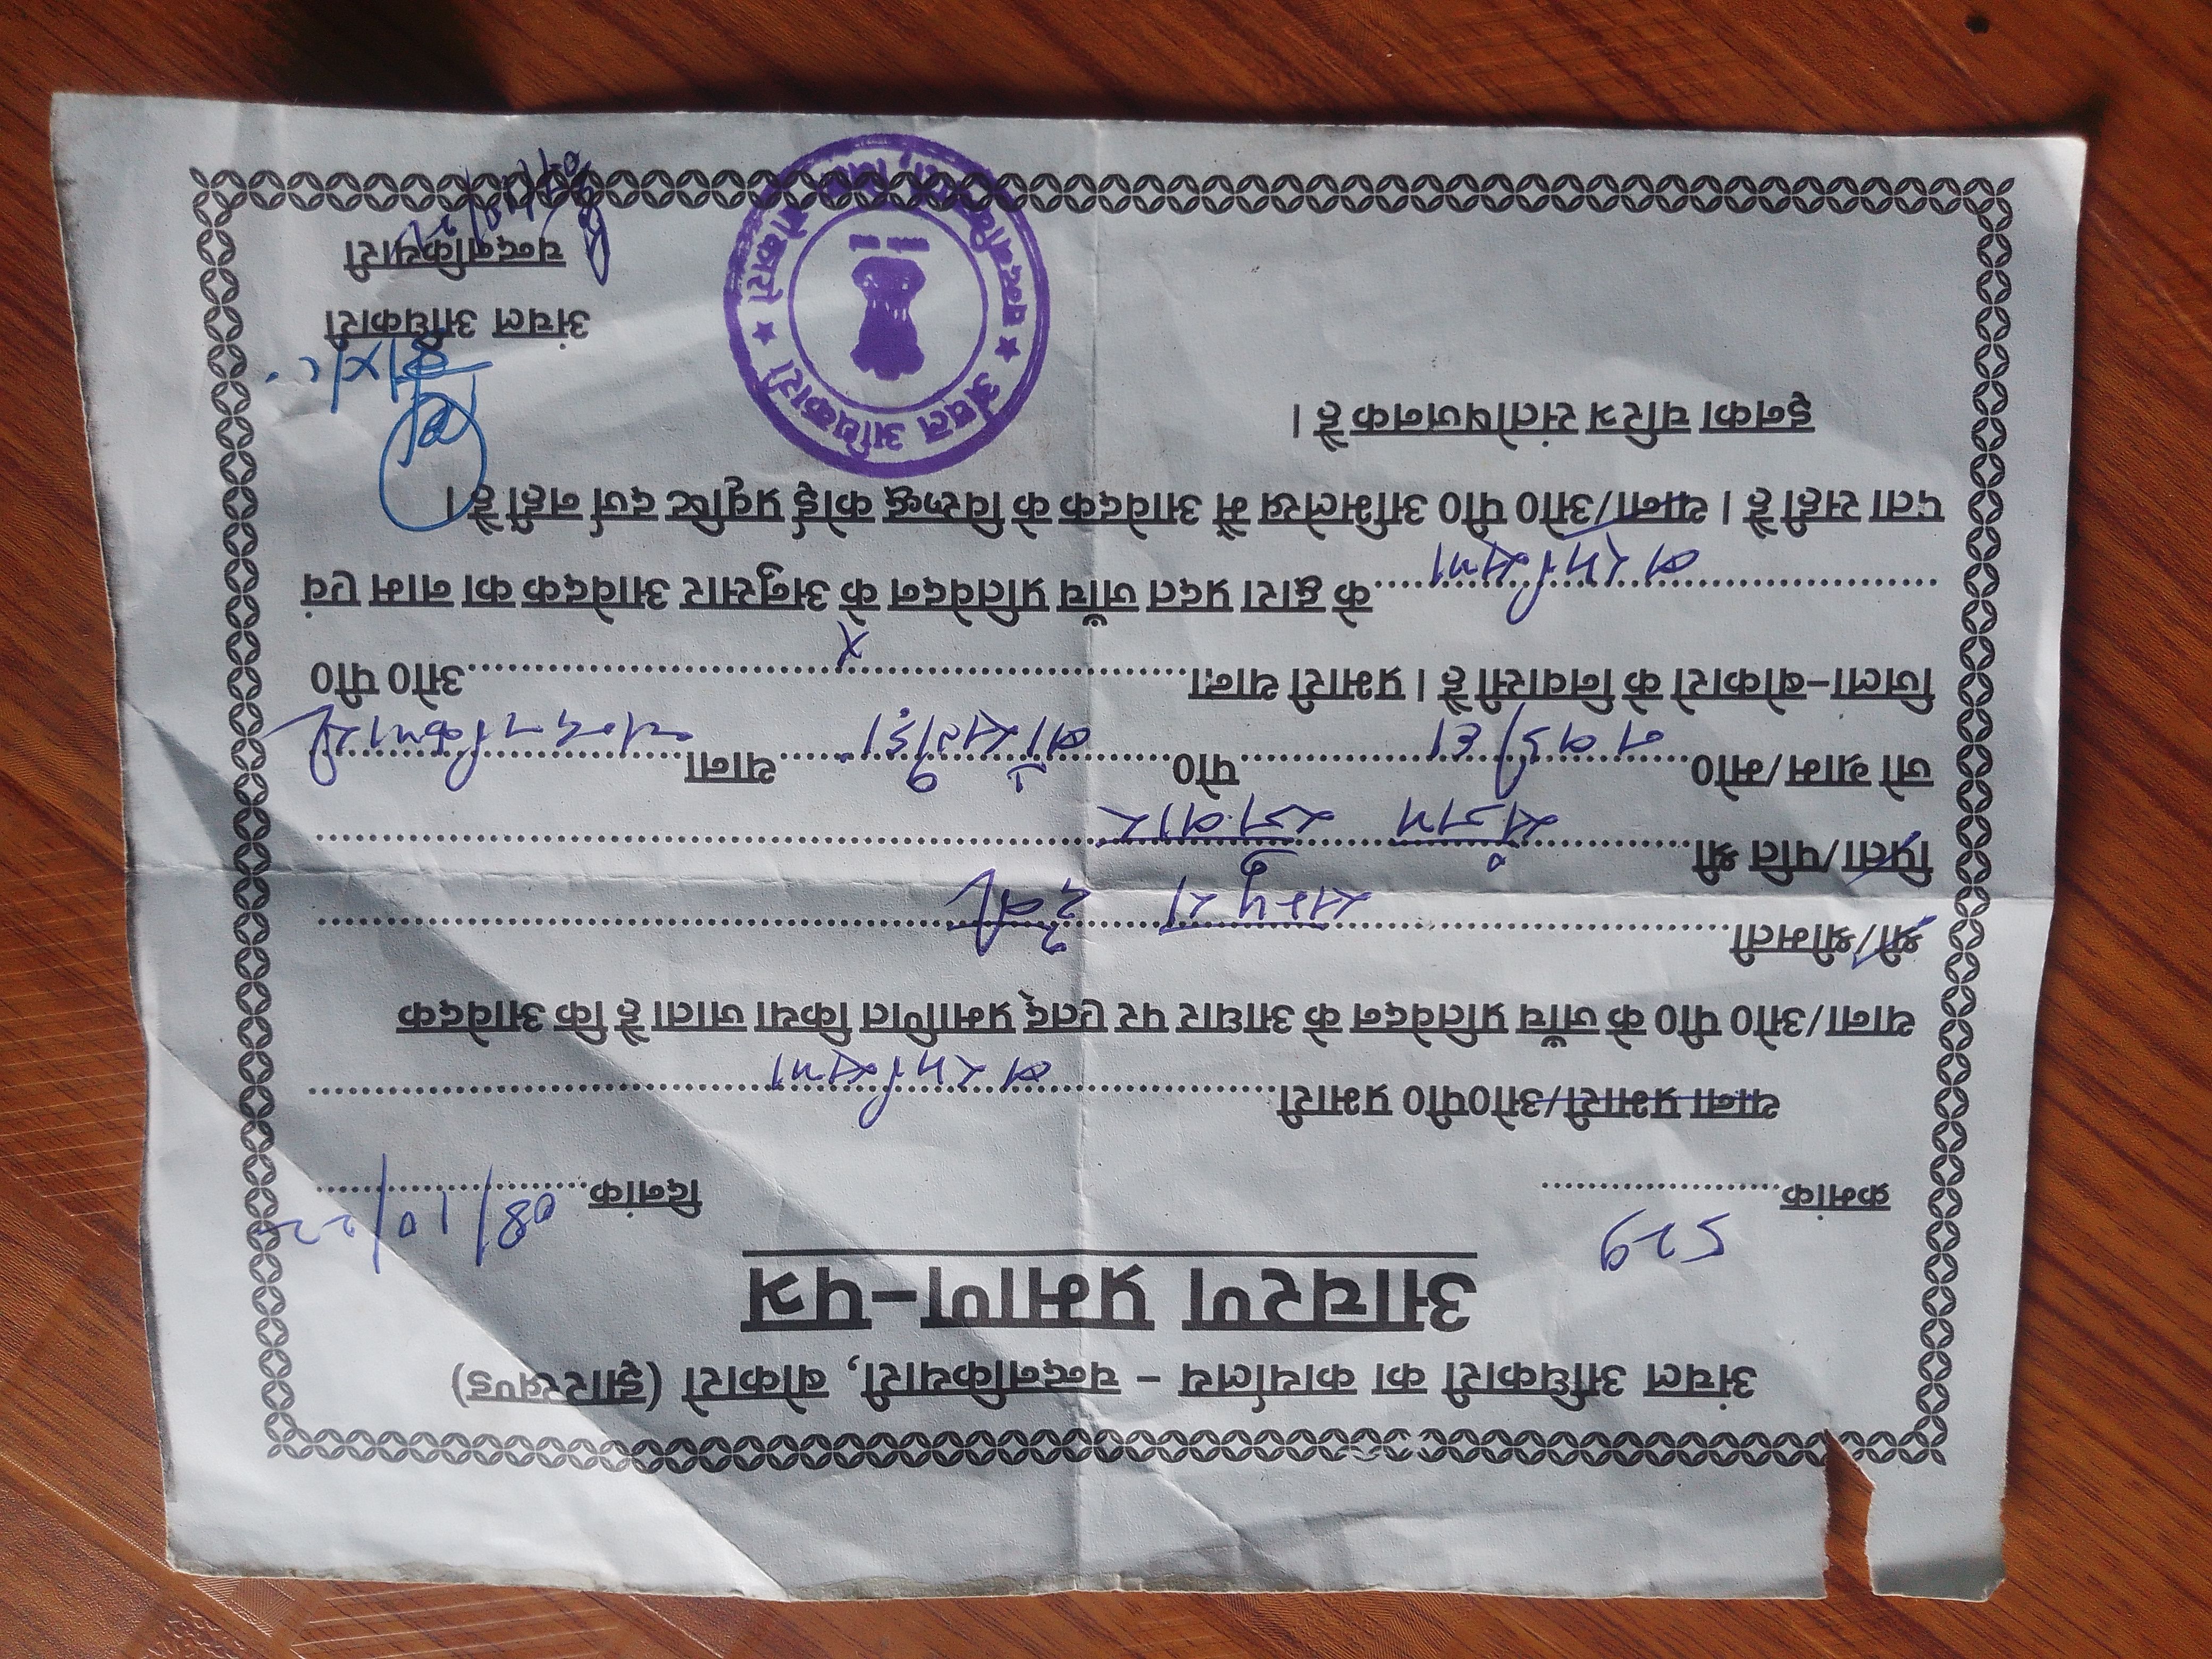 अंचल अधिकारी का कार्यालय - चन्दनकियारी, बोकारो (झारखण्ड)
आचरण प्रमाण-पत्र
529
08/10/22
क्रमांक.................... दिनांक....................
थाना प्रभारी/ओ०पी० प्रभारी.......... बरमसिया ..........
थाना/ओ० पी० के जाँच प्रतिवेदन के आधार पर एतद् प्रमाणित किया जाता है कि आवेदक
श्री/श्रीमती.......... देवी ..........
पिता/पति श्री..........
जो ग्राम/मो०.......... पो०.......... थाना.......... चन्दनकियारी
जिला-बोकारो के निवासी है। प्रभारी थाना.......... X ..........ओ० पी०
.......... बरमसिया ..........के द्वारा प्रदत जाँच प्रतिवेदन के अनुसार आवेदक का नाम एवं
पता सही है। थाना/ओ० पी० अभिलेख में आवेदक के विरूद्ध कोई प्रवृष्टि दर्ज नहीं है।
इनका चरित्र संतोषजनक है।
अंचल अधिकारी
चन्दनकियारी
अंचल अधिकारी ★ चन्दनकियारी, बोकारो ★